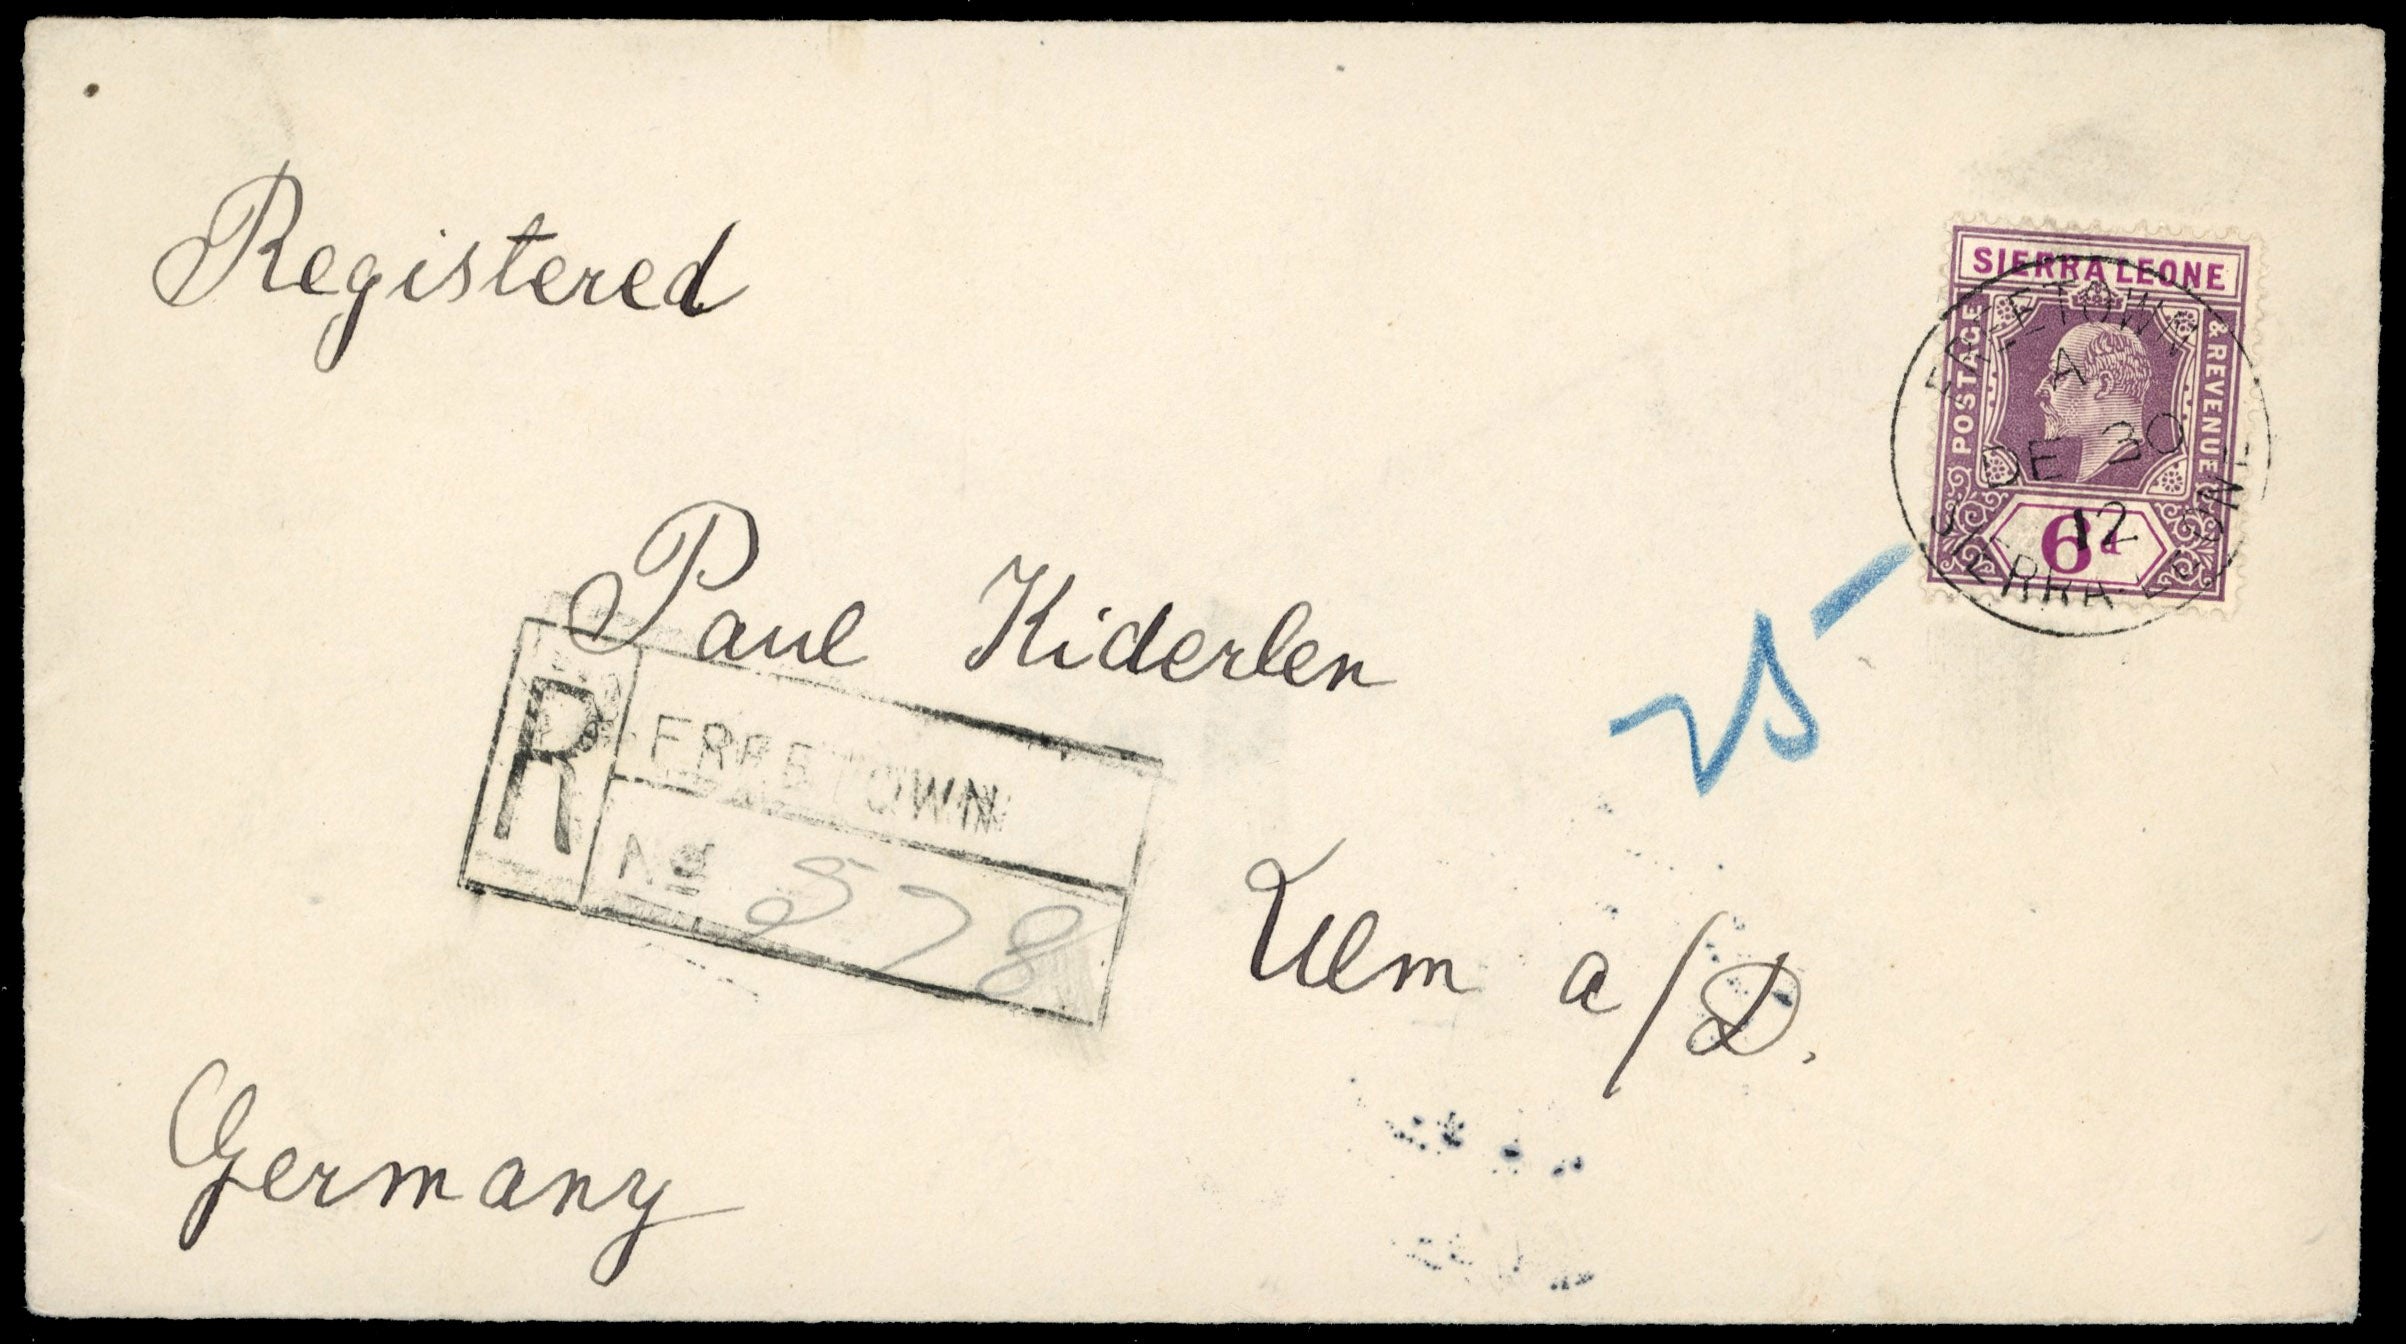 Registered
SIERRA LEONE
POSTAGE
& REVENUE
6d
FREETOWN
A
DE 30
12
SIERRA LEONE
Paul Kiderlen
25
R
FREETOWN
No 578
Ulm a/D.
Germany